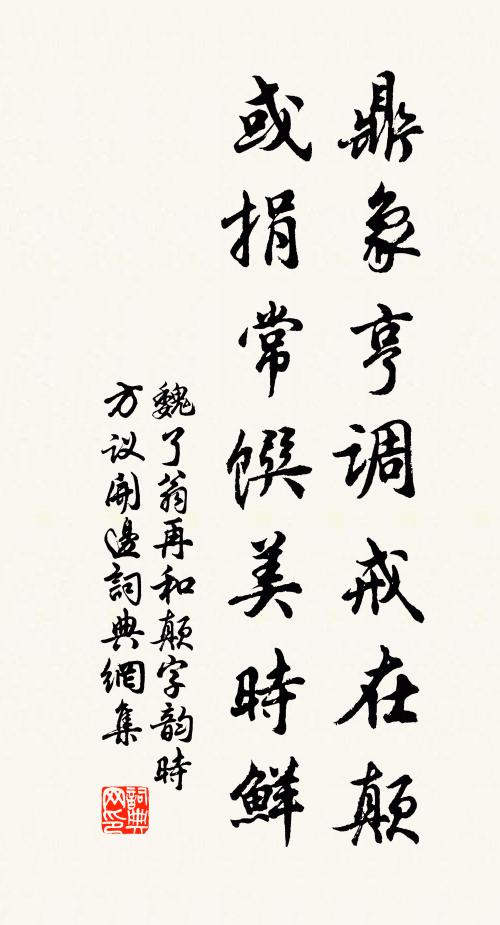 鼎象亨调戒在颠
或捐常馔美時鮮
魏了翁再和颠字韵時
方议開邊詞典網集
詞典网印